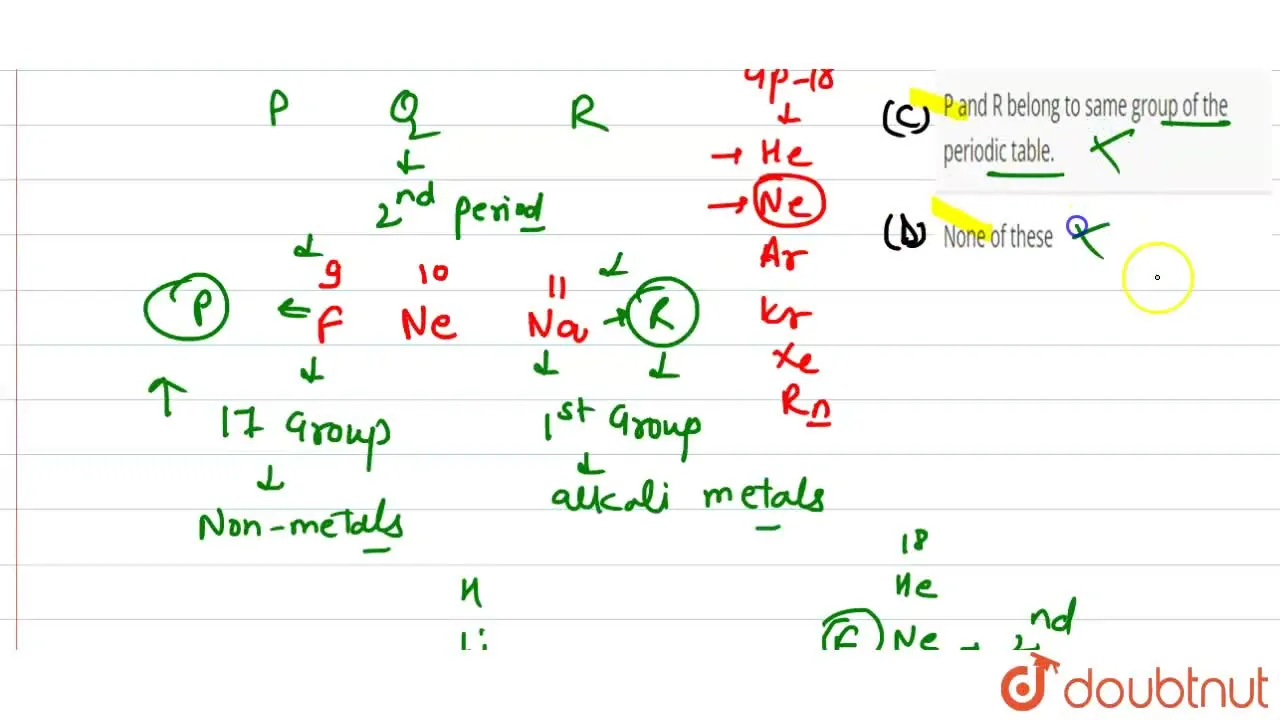 Gp-18
P Q R
He
2nd period
Ne
9 10 11
Ar
P F Ne Na R
Kr
Xe
Rn
17 Group 1st Group
Non-metals
alkali metals
H
Li
18
He
F Ne → 2nd
(C) P and R belong to same group of the
periodic table.
(D) None of these
doubtnut